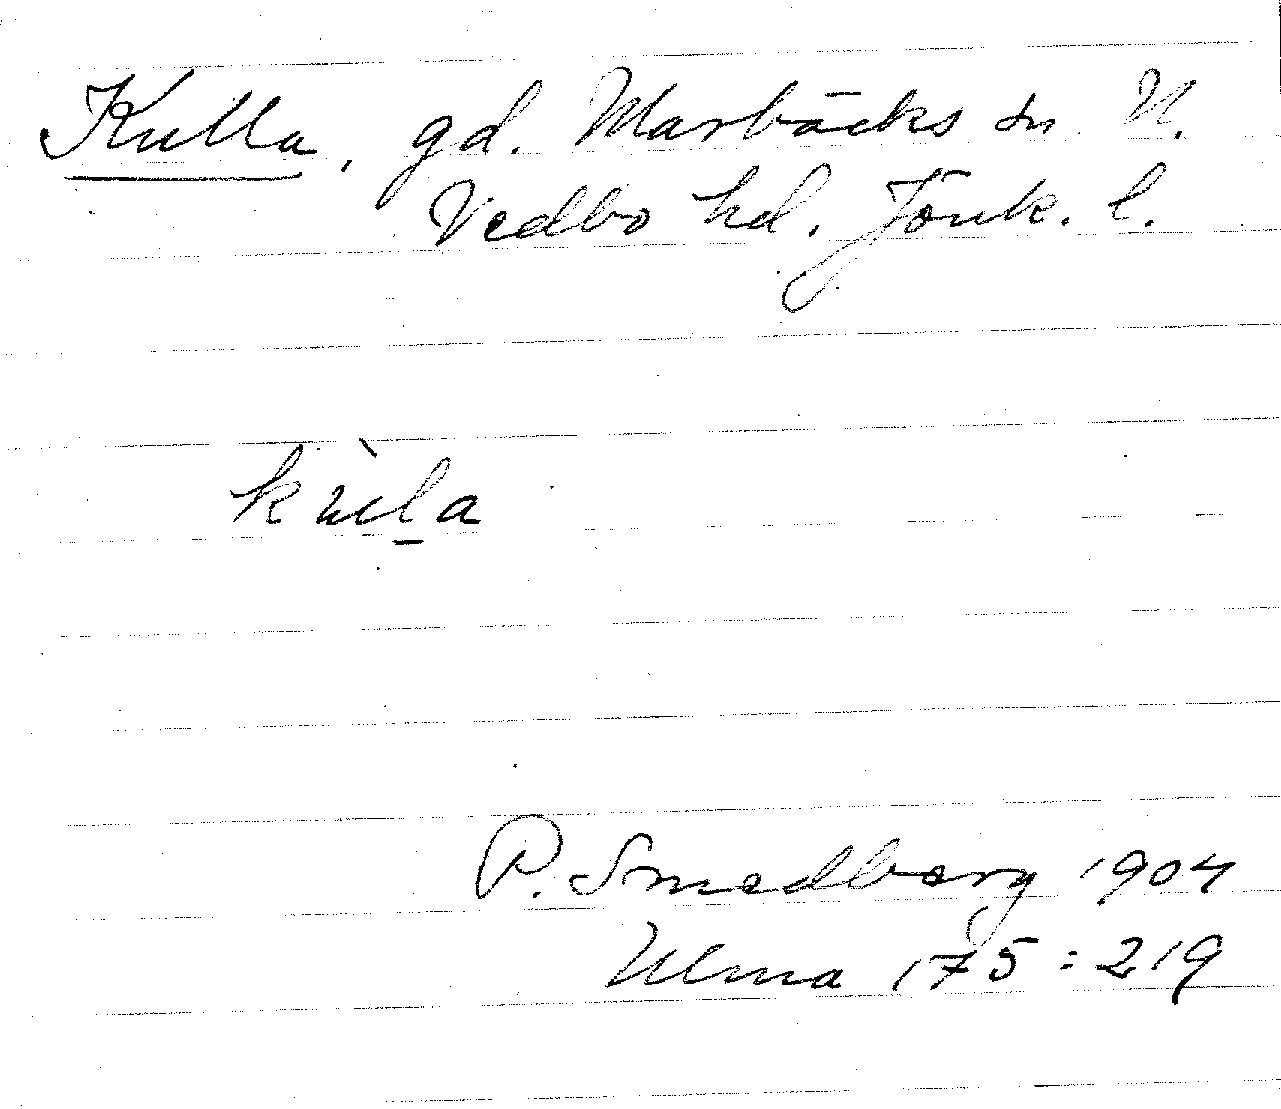 Kulla, gd. Marbäcks sn N.
Vedbo hd. Jönk. l.
kùl̠a
P. Smedberg 1904
Ulma 175:219